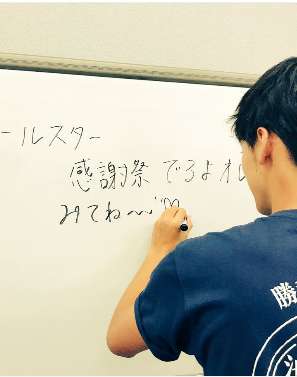 ールスター
感謝祭でるよオレ
みてね〜〜!!
勝